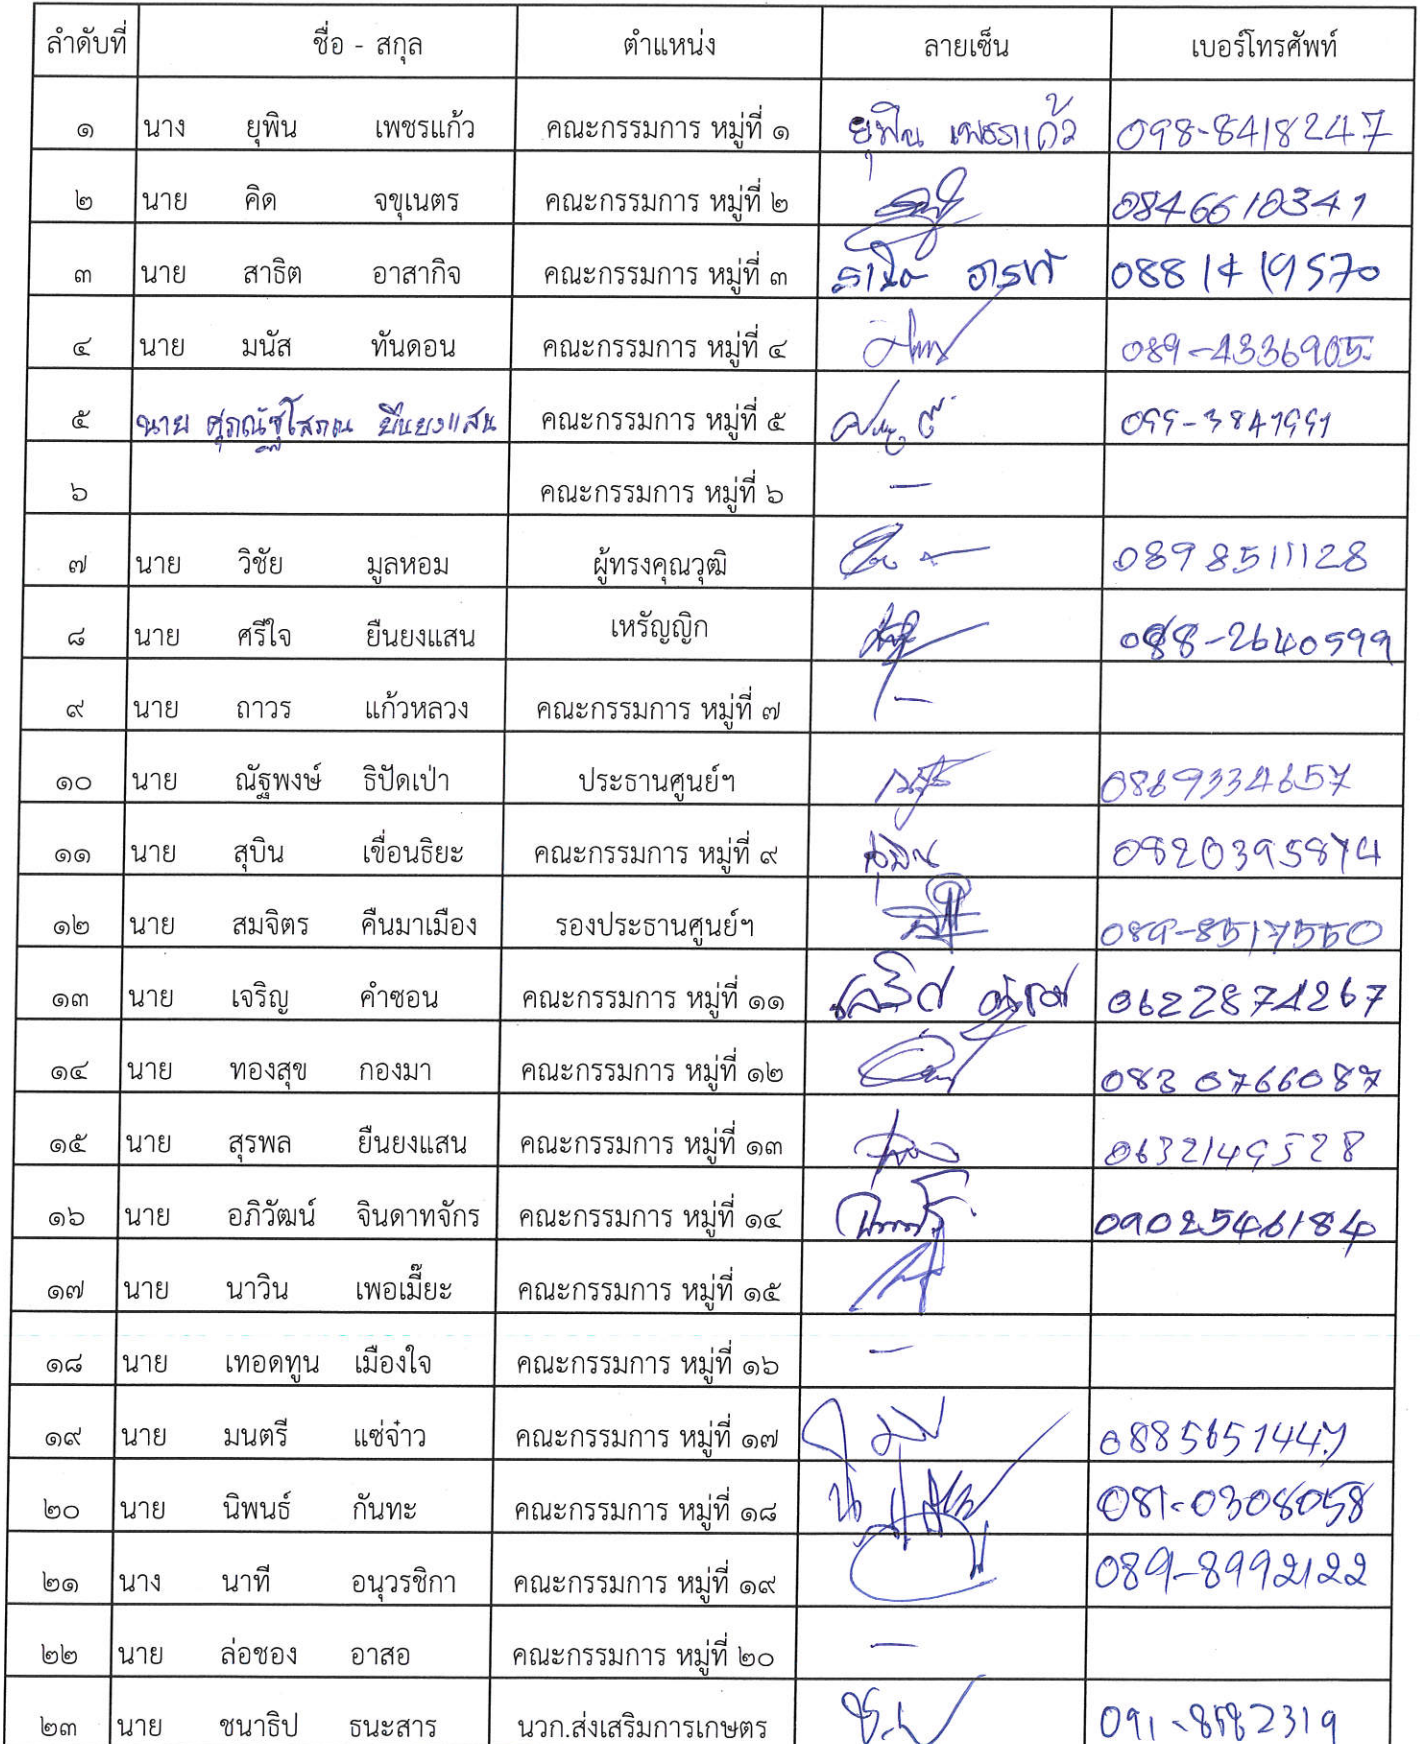 ลำดับที่ ชื่อ - สกุล ตำแหน่ง ลายเซ็น เบอร์โทรศัพท์
๑ นาง ยุพิน เพชรแก้ว คณะกรรมการ หมู่ที่ ๑ ยุพิน เพชรแก้ว 098-8418247
๒ นาย คิด จขุเนตร คณะกรรมการ หมู่ที่ ๒ 0846610341
๓ นาย สาธิต อาสากิจ คณะกรรมการ หมู่ที่ ๓ 0881419570
๔ นาย มนัส ทันดอน คณะกรรมการ หมู่ที่ ๔ 089-4336905
๕ นาย ศุภณัฐโสภณ ยืนยงแสน คณะกรรมการ หมู่ที่ ๕ 099-3847991
๖ คณะกรรมการ หมู่ที่ ๖ —
๗ นาย วิชัย มูลหอม ผู้ทรงคุณวุฒิ 0898511128
๘ นาย ศรีใจ ยืนยงแสน เหรัญญิก 088-2640599
๙ นาย ถาวร แก้วหลวง คณะกรรมการ หมู่ที่ ๗ —
๑๐ นาย ณัฐพงษ์ ธิปัดเป่า ประธานศูนย์ฯ 0869334657
๑๑ นาย สุบิน เขื่อนธิยะ คณะกรรมการ หมู่ที่ ๙ สุบิน 0820395874
๑๒ นาย สมจิตร คืนมาเมือง รองประธานศูนย์ฯ 089-8517550
๑๓ นาย เจริญ คำซอน คณะกรรมการ หมู่ที่ ๑๑ 0622874267
๑๔ นาย ทองสุข กองมา คณะกรรมการ หมู่ที่ ๑๒ 0830766087
๑๕ นาย สุรพล ยืนยงแสน คณะกรรมการ หมู่ที่ ๑๓ 0632149528
๑๖ นาย อภิวัฒน์ จินดาทจักร คณะกรรมการ หมู่ที่ ๑๔ 0902546184
๑๗ นาย นาวิน เพอเมี๊ยะ คณะกรรมการ หมู่ที่ ๑๕
๑๘ นาย เทอดทูน เมืองใจ คณะกรรมการ หมู่ที่ ๑๖ —
๑๙ นาย มนตรี แซ่จ๋าว คณะกรรมการ หมู่ที่ ๑๗ 0885651447
๒๐ นาย นิพนธ์ กันทะ คณะกรรมการ หมู่ที่ ๑๘ 081-0308058
๒๑ นาง นาที อนุวรชิกา คณะกรรมการ หมู่ที่ ๑๙ 089-8992122
๒๒ นาย ล่อชอง อาสอ คณะกรรมการ หมู่ที่ ๒๐ —
๒๓ นาย ชนาธิป ธนะสาร นวก.ส่งเสริมการเกษตร 091-8582319